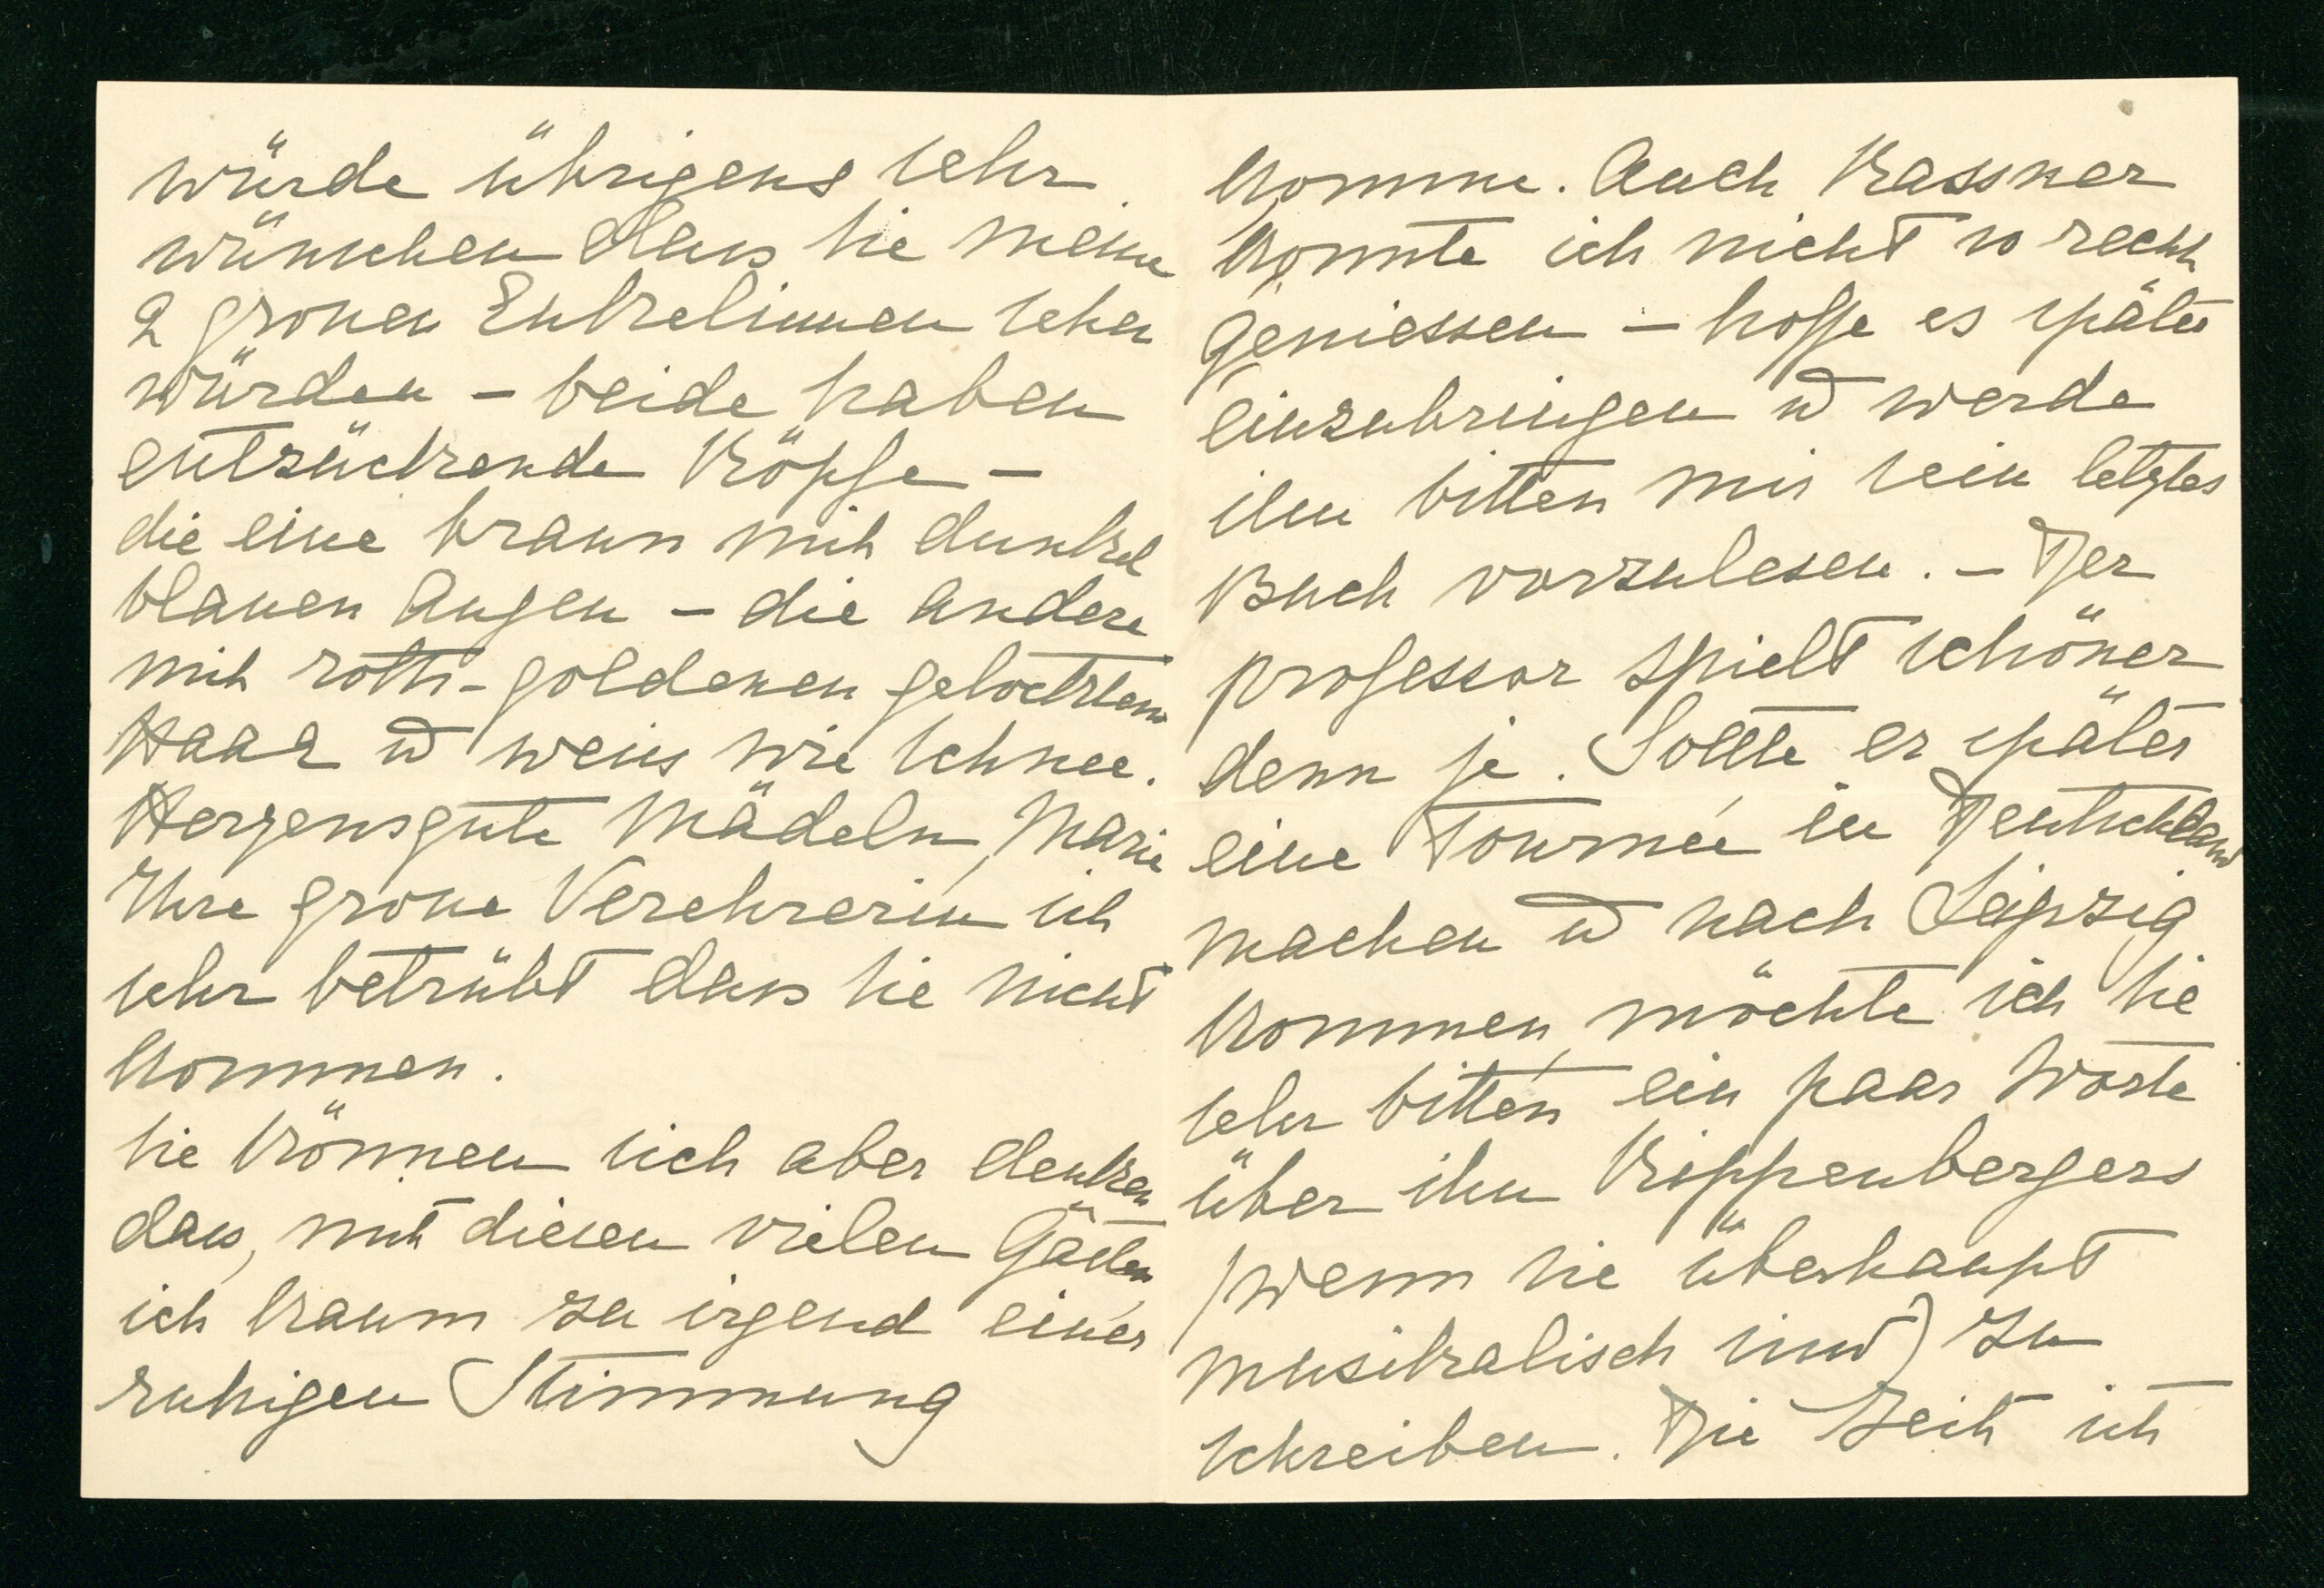 würde übrigens sehr
wünschen dass Sie meine
2 grossen Enkelinnen sehen
würden – beide haben
entzückende Köpfe –
die eine braun mit dunkel
blauen Augen – die andere
mit roth-goldenen gelockten
Haar u weiss wie Schnee.
Herzensgute Mädeln, Marie
Ihre grosse Verehrerin ist
sehr betrübt dass Sie nicht
kommen.
Sie können sich aber denken
dass, mit diesen vielen Gästen,
ich kaum zu irgend einer
ruhigen Stimmung
komme. Auch Kassner
konnte ich nicht so recht
geniessen – hoffe es später
einzubringen u werde
ihn bitten mir sein letztes
Buch vorzulesen. – Der
Professor spielt schöner
denn je. Sollte er später
eine Tournée in Deutschland
machen u nach Leipzig
kommen, möchte ich Sie
sehr bitten ein paar Worte
über ihn Kippenbergers
(wenn sie überhaupt
musikalisch sind) zu
schreiben. Die Zeit ist